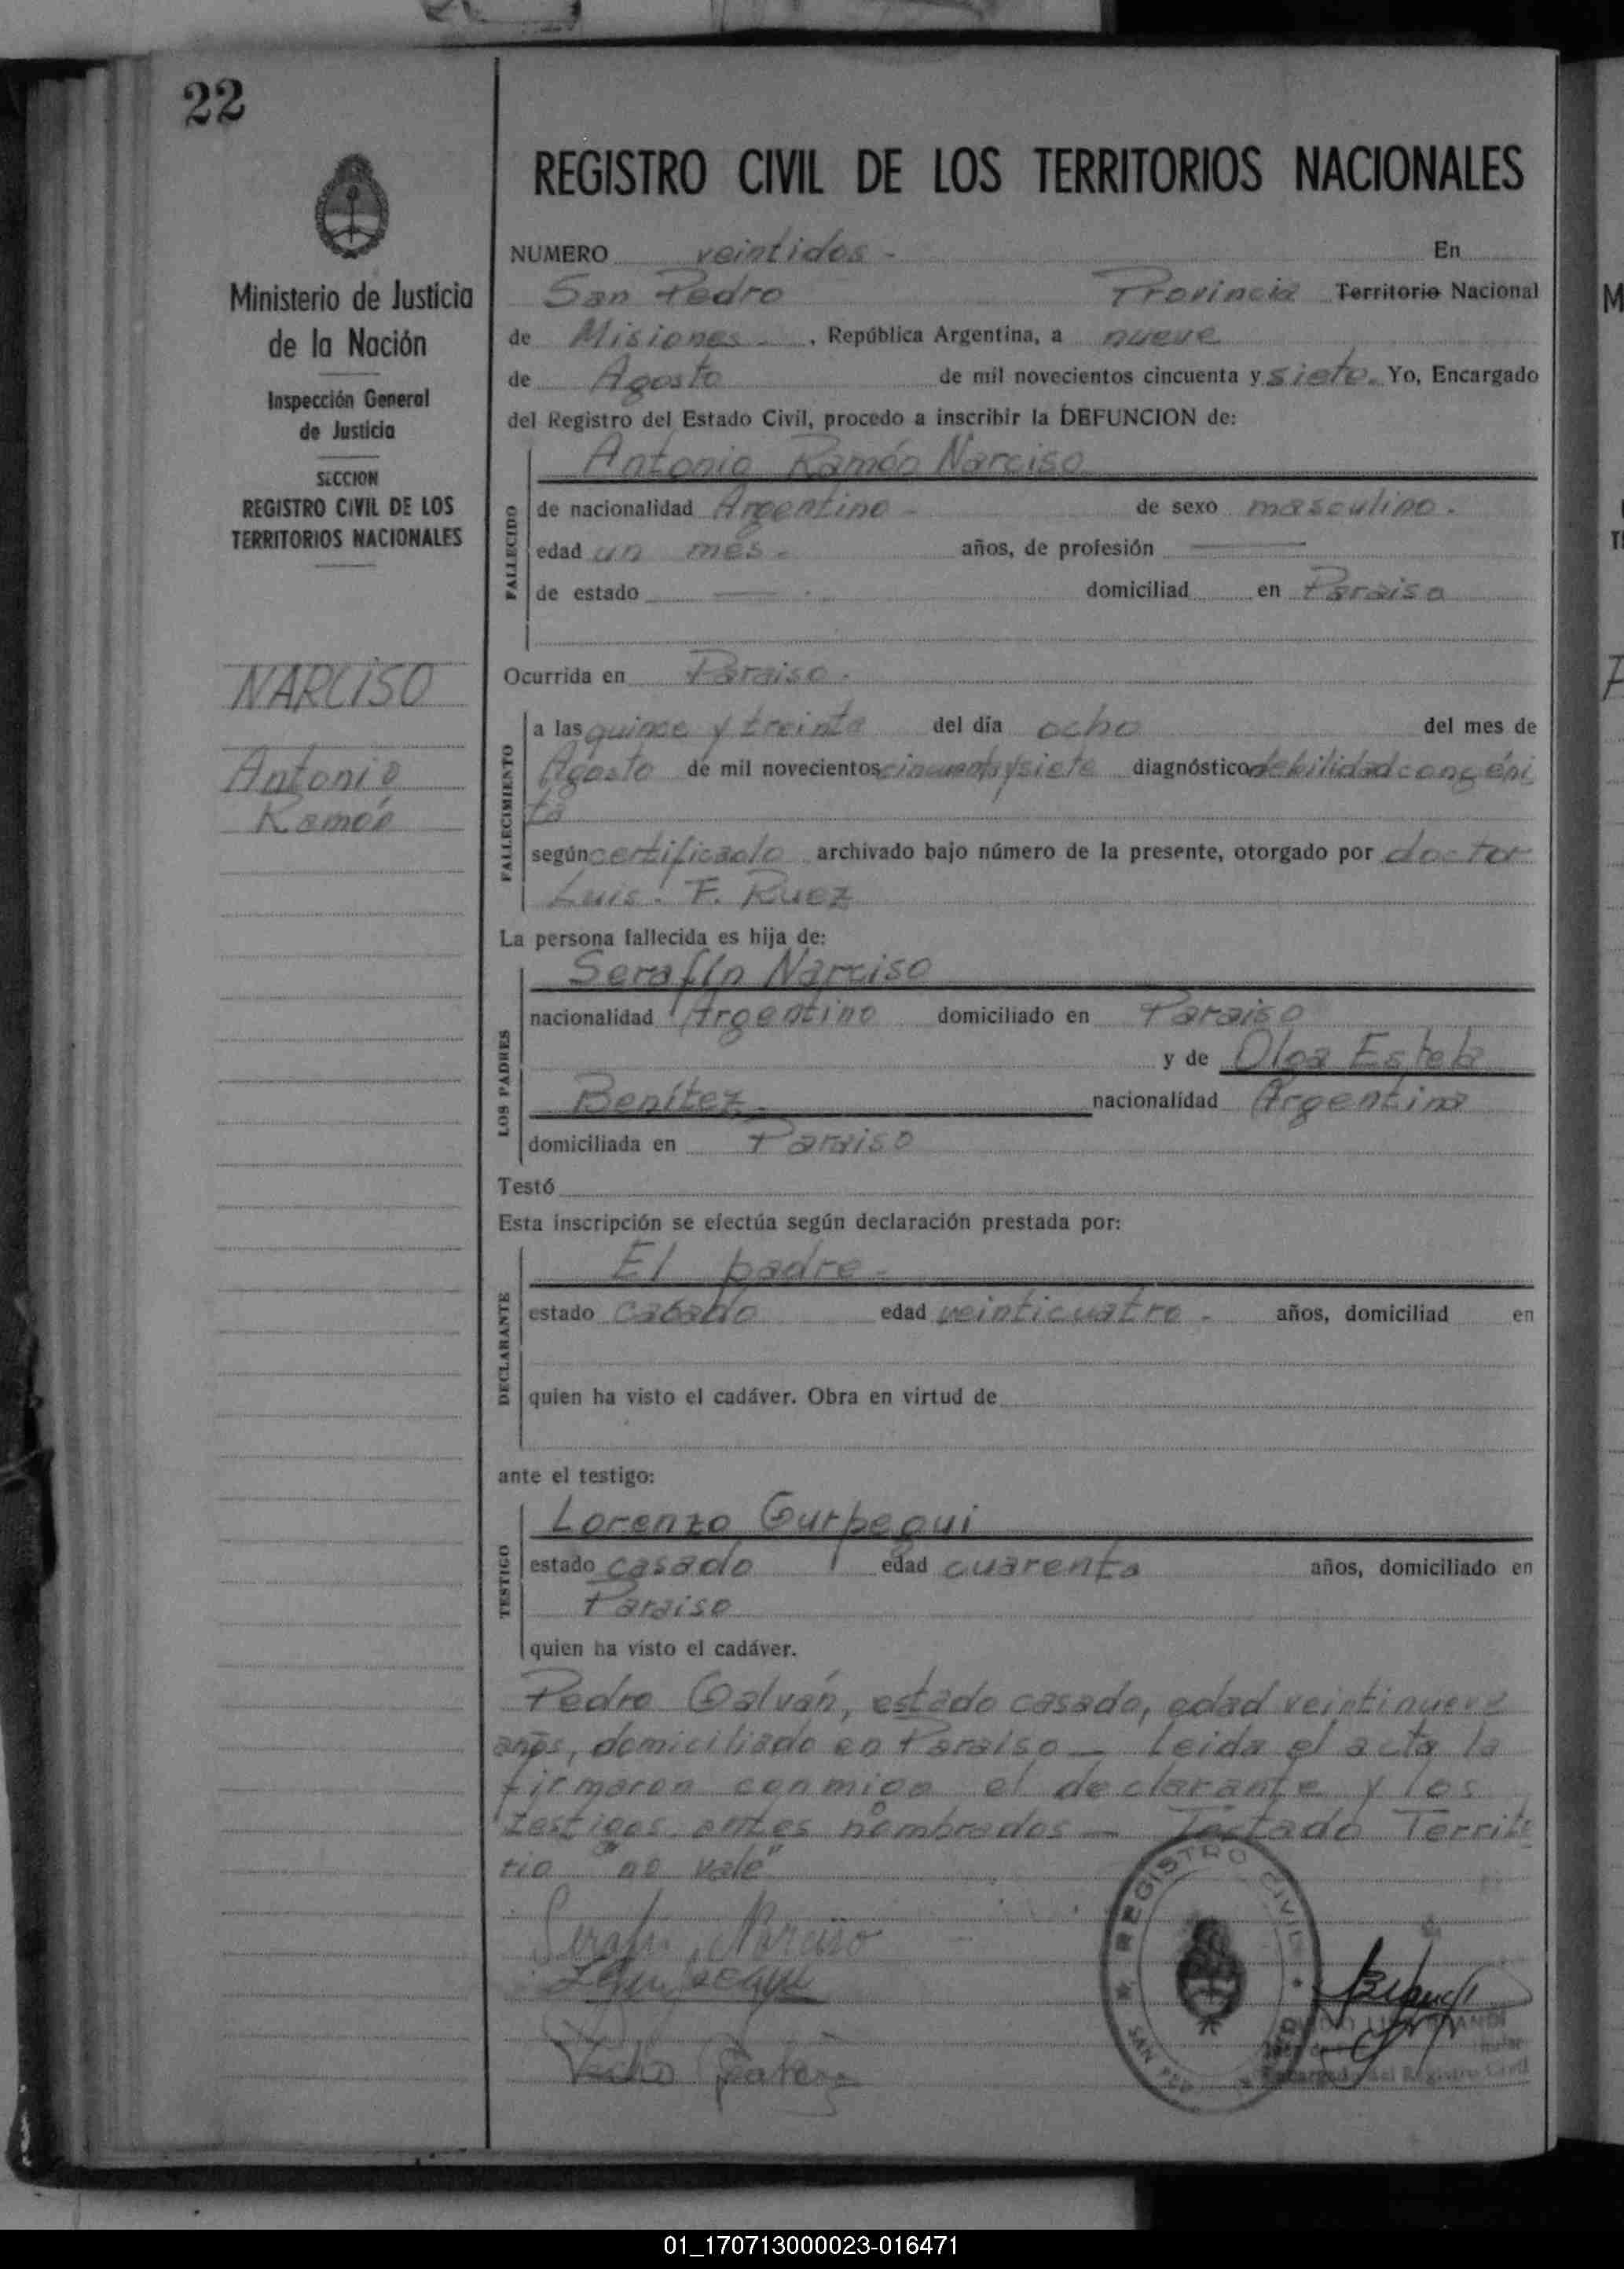 22
Ministerio de Justicia
de la Nación
Inspección General
de Justicia
SECCION
REGISTRO CIVIL DE LOS
TERRITORIOS NACIONALES
NARCISO
Antonio
Ramón
REGISTRO CIVIL DE LOS TERRITORIOS NACIONALES
NUMERO veintidos - En
San Pedro Provincia Territorio Nacional
de Misiones . República Argentina, a nueve
de Agosto de mil novecientos cincuenta y siete. Yo, Encargado
del Registro del Estado Civil, procedo a inscribir la DEFUNCION de:
Antonio Ramón Narciso
FALLECIDO
de nacionalidad Argentino - de sexo masculino.
edad un mes - años, de profesión
de estado domiciliad en Paraiso
Ocurrida en Paraiso.
FALLECIMIENTO
a las quince y treinta del día ocho del mes de
Agosto de mil novecientos cincuenta y siete diagnóstico debilidad congéni
ta
según certificado archivado bajo número de la presente, otorgado por doctor
Luis. F. Ruez
La persona fallecida es hija de:
LOS PADRES
Serafín Narciso
nacionalidad Argentino domiciliado en Paraiso
y de Olga Estela
Benítez nacionalidad Argentina
domiciliada en Paraiso
Testó
Esta inscripción se efectúa según declaración prestada por:
DECLARANTE
El padre -
estado casado edad veinticuatro - años, domiciliad en
quien ha visto el cadáver. Obra en virtud de
ante el testigo:
TESTIGO
Lorenzo Gurpegui
estado casado edad cuarenta años, domiciliado en
Paraiso
quien ha visto el cadáver.
Pedro Galván, estado casado, edad veintinueve
años, domiciliado en Paraiso — Leida el acta la
firmaron conmigo el declarante y los
testigos antes nombrados — Testado Territo
rio "no vale"
Serafin Narciso
REGISTRO CIVIL
SAN PED
Encargado del Registro Civil
01_170713000023-016471